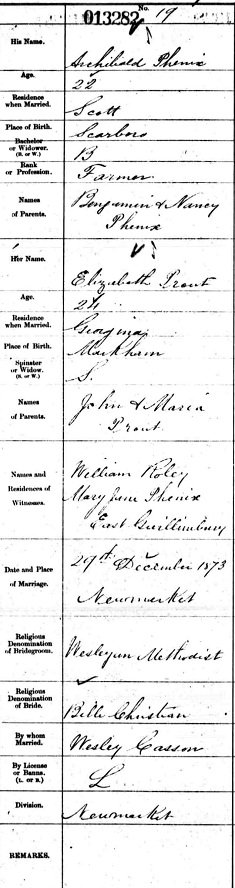 013282 No. 19
His Name.
Archibald Phenix
Age.
22
Residence
when Married.
Scott
Place of Birth.
Scarboro
Bachelor
or Widower.
(B. or W.)
B
Rank
or Profession.
Farmer
Names
of Parents.
Benjamin & Nancy
Phenix
Her Name.
Elizabeth Prout
Age.
24
Residence
when Married.
Georgina
Place of Birth.
Markham
Spinster
or Widow.
(S. or W.)
S.
Names
of Parents.
John & Maria
Prout
Names and
Residences of
Witnesses.
William Roley
Mary Jane Phenix
East Gwillimbury
Date and Place
of Marriage.
29th December 1873
Newmarket
Religious
Denomination
of Bridegroom.
Wesleyan Methodist
Religious
Denomination
of Bride.
Bible Christian
By whom
Married.
Wesley Casson
By License
or Banns.
(L. or B.)
L
Division.
Newmarket
REMARKS.